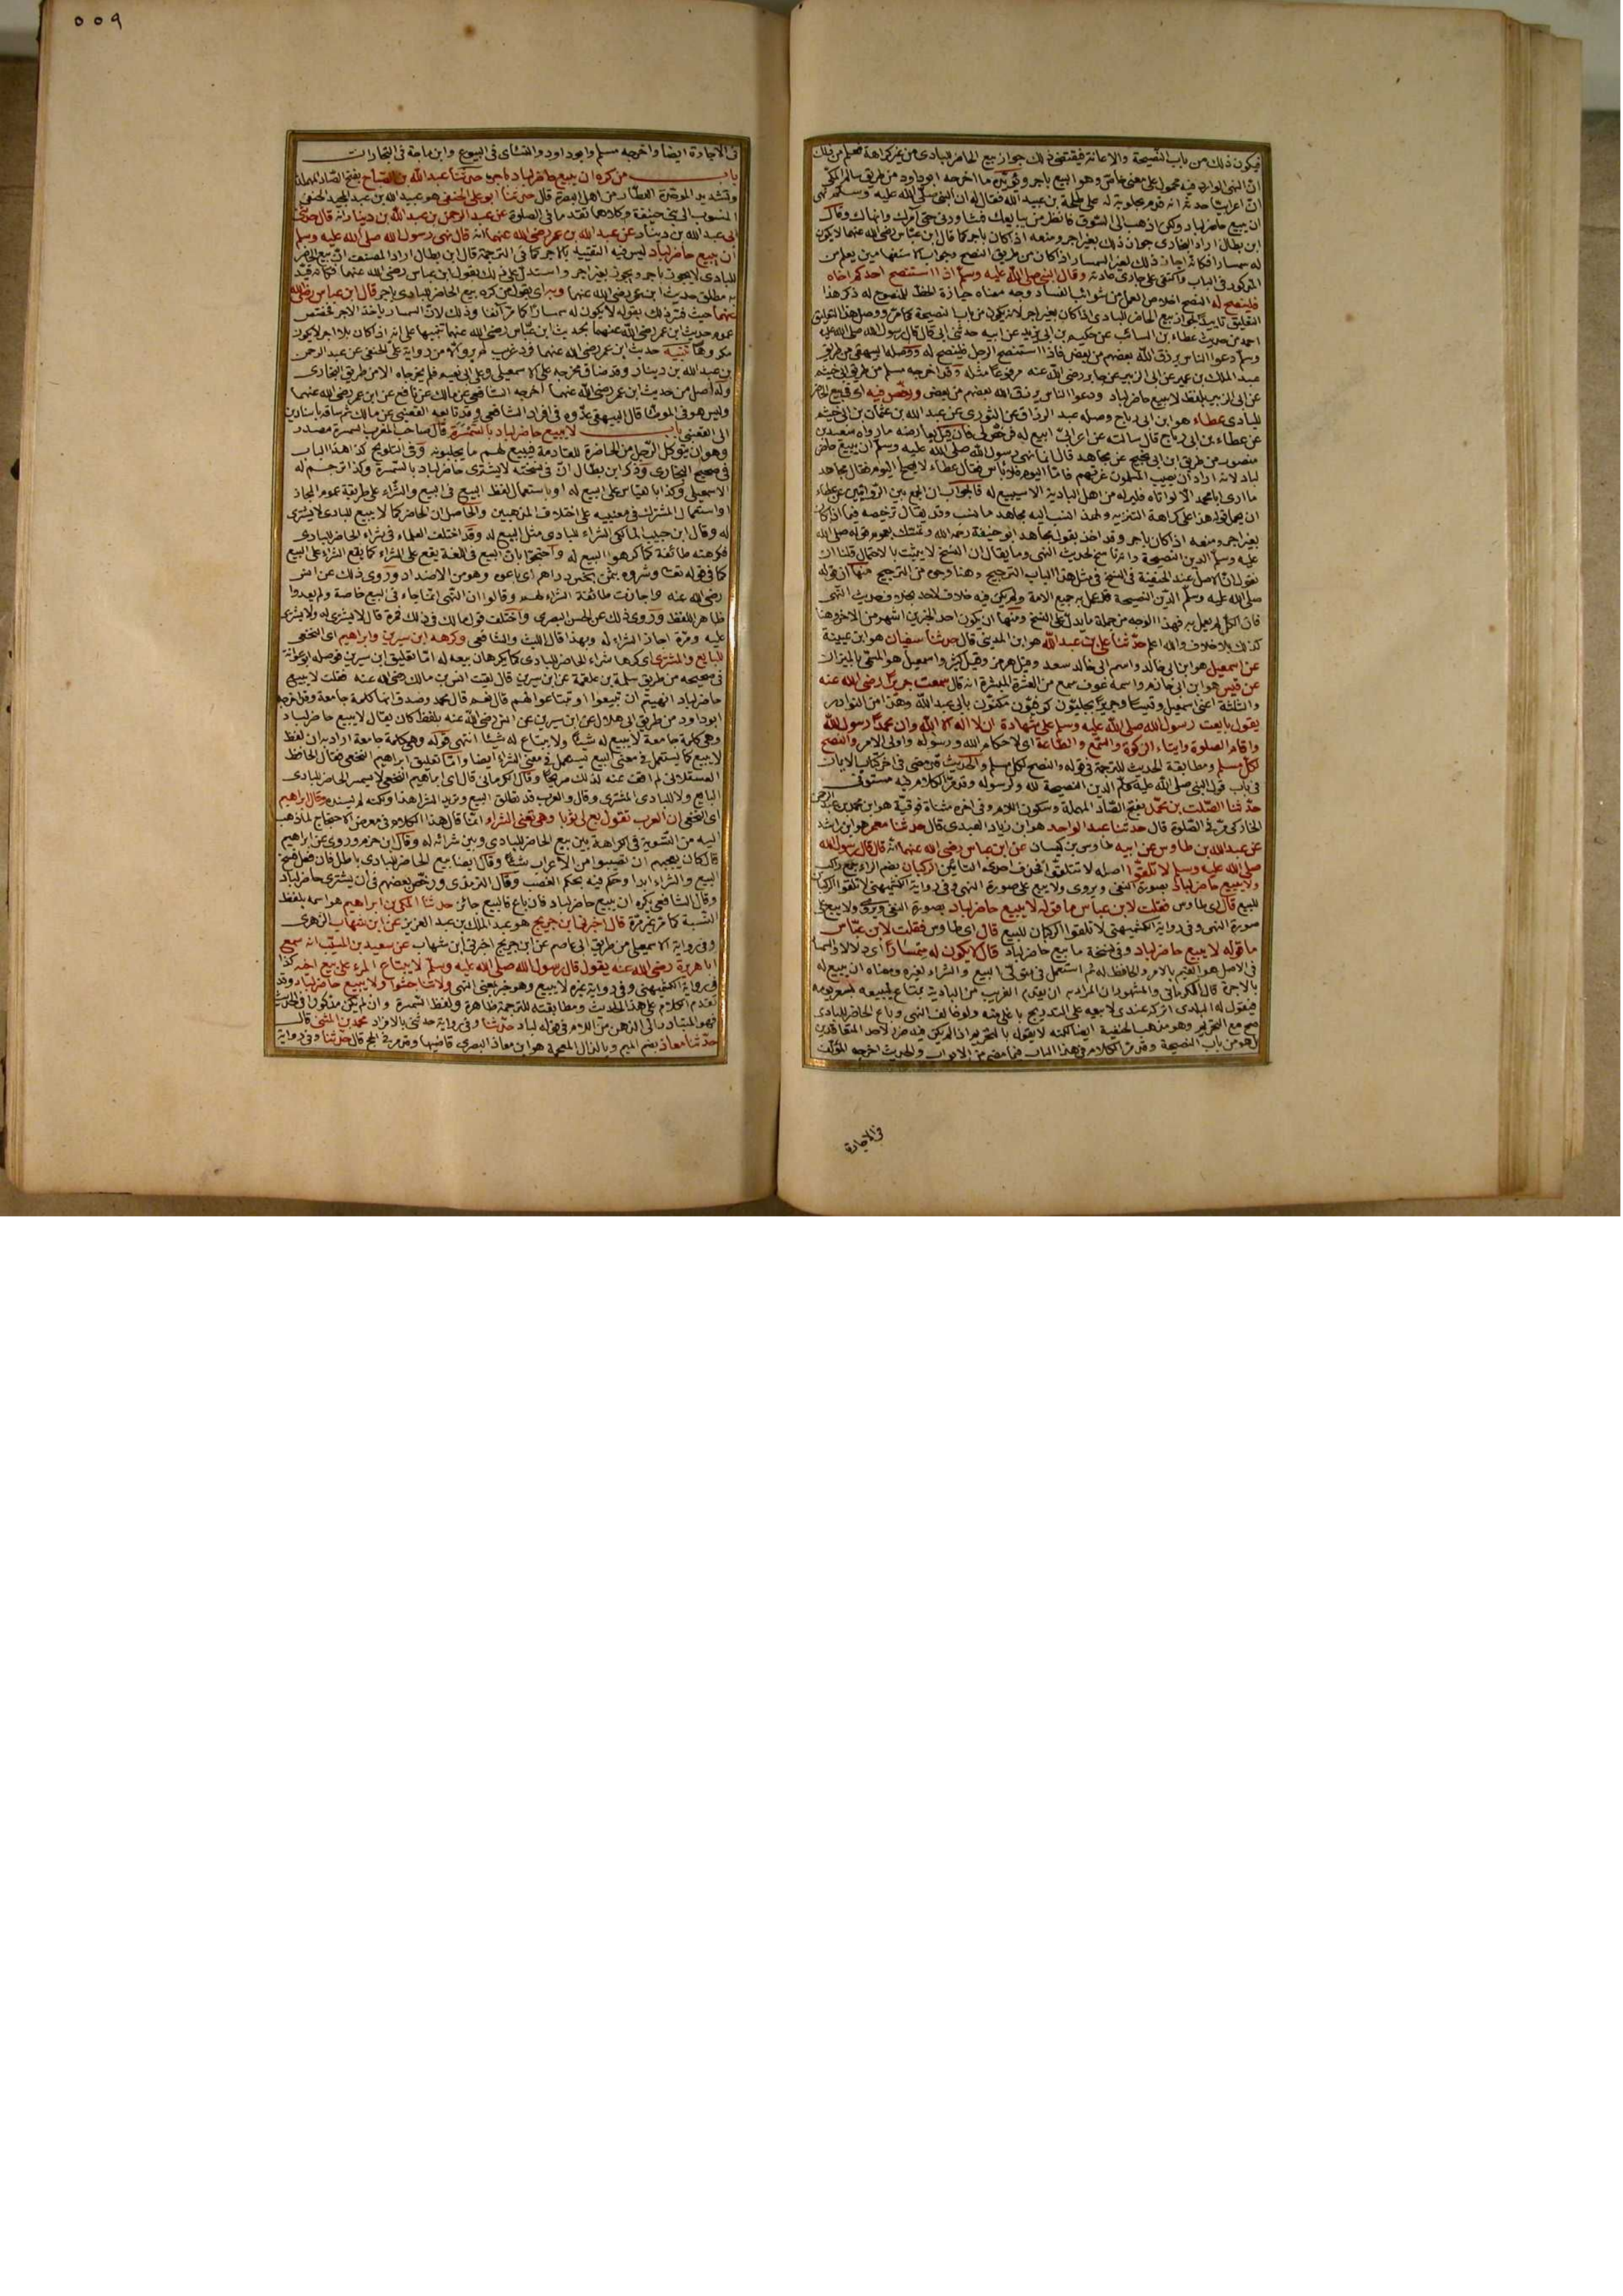 فيكون ذلك من باب النصيحة والاعانة فيقتضى ذلك جواز بيع الحاضر للبادى من غير كراهة فعلم من ذلك
ان النهى الوارد فيه محمول على معنى خاص وهو البيع باجر ويؤيده ما اخرجه ابو داود من طريق سالم المكى
ان اعرابيا حدثه انه قدم بحلوبة له على طلحة بن عبيد الله فقال له ان النبى صلى الله عليه وسلم نهى
ان يبيع حاضر لباد ولكن اذهب الى السوق فانظر من يبايعك فشاورنى حتى آمرك وانهاك وقال
ابن بطال اراد البخارى جواز ذلك بغير اجر ومنعه اذا كان باجر كما قال ابن عباس رضى الله عنهما لا يكون
له سمسارا فكانه اجاز ذلك لغير السمسار اذا كان من طريق النصح وجواب الاستفهامين يعلم من
المذكور فى الباب واكتفى على جارى عادته وقال النبى صلى الله عليه وسلم اذا استنصح احدكم اخاه
فلينصح له النصح اخلاص العمل من شوائب الفساد ومعناه حيازة الحظ للمنصوح له ذكر هذا
التعليق تاييدا لجواز بيع الحاضر للبادى اذا كان بغير اجر لانه يكون من باب النصيحة كما مر ووصل هذا التعليق
احمد من حديث عطاء بن السائب عن حكيم بن ابى يزيد عن ابيه حدثنى ابى قال قال رسول الله صلى الله عليه
وسلم دعوا الناس يرزق الله بعضهم من بعض فاذا استنصح الرجل فلينصح له ووصله البيهقى من طريق
عبد الملك بن عمير عن ابى الزبير عن جابر رضى الله عنه مرفوعا مثله وقد اخرجه مسلم من طريق ابى خيثمة
عن ابى الزبير بلفظ لا يبيع حاضر لباد ودعوا الناس يرزق الله بعضهم من بعض ورخص فيه اى فى بيع الحاضر
للبادى عطاء هو ابن ابى رباح وصله عبد الرزاق عن الثورى عن عبد الله بن عثمان بن خثيم
عن عطاء بن ابى رباح قال سالته عن اعرابى ابيع له فرخص لى فان قيل يعارضه ما رواه سعيد بن
منصور من طريق ابن ابى نجيح عن مجاهد قال انما نهى رسول الله صلى الله عليه وسلم ان يبيع حاضر
لباد لانه اراد ان يصيب المسلمون غرتهم فاما اليوم فلا باس فقال عطاء لا يصلح اليوم فقال مجاهد
ما ارى ابا محمد الا لو اتاه ظير له من اهل البادية الا سيبيع له فالجواب ان الجمع بين الروايتين عن عطاء
ان يحمل قوله هذا على كراهة التنزيه ولهذا نسب اليه مجاهد ما نسب وقد يقال ترخيصه فيما اذا كان
بغير اجر ومنعه اذا كان باجر وقد اخذ بقول مجاهد ابو حنيفة رحمه الله وتمسك بعموم قوله صلى الله
عليه وسلم الدين النصيحة وانه ناسخ لحديث النهى وما يقال ان النسخ لا يثبت بالاحتمال قلنا ان
نقول ان الاصل عند الحنفية فى النسخ فى مثل هذا الباب الترجيح وهنا وجوه من الترجيح منها ان قوله
صلى الله عليه وسلم الدين النصيحة قد عمل به جميع الامة ولم يكن فيه خلاف لاحد بخلاف حديث النهى
فان الكل لم يعمل به فهذا الوجه من جملة ما يدل على النسخ ومنها ان يكون احد الخبرين اشهر من الاخر وهنا
كذلك بلا خلاف والله اعلم حدثنا على بن عبد الله هو ابن المدينى قال حدثنا سفيان هو ابن عيينة
عن اسمعيل هو ابن ابى خالد واسم ابى خالد سعد وقيل هرمز وقيل كثير واسمعيل هو المسمى بالميزان
عن قيس هو ابن ابى حازم واسمه عوف سمع من العشرة المبشرة انه قال سمعت جريرا رضى الله عنه
والثلثة اعنى اسمعيل وقيسا وجريرا بجليون كوفيون مكنون بابى عبد الله وهذا من النوادر
يقول بايعت رسول الله صلى الله عليه وسلم على شهادة ان لا اله الا الله وان محمدا رسول الله
واقام الصلوة وايتاء الزكوة والسمع والطاعة اى لاحكام الله ورسوله واولى الامر والنصح
لكل مسلم ومطابقة الحديث للترجمة فى قوله والنصح لكل مسلم والحديث قد مضى فى اخر كتاب الايمان
فى باب قول النبى صلى الله عليه وسلم الدين النصيحة لله ولرسوله وقد مر الكلام فيه مستوفى
حدثنا الصلت بن محمد بفتح الصاد المهملة وسكون اللام وفى اخره مثناة فوقية هو ابن محمد بن عبد الرحمن
الخاركى مر فى الصلوة قال حدثنا عبد الواحد هو ابن زياد العبدى قال حدثنا معمر هو ابن راشد
عن عبد الله بن طاوس عن ابيه طاوس بن كيسان عن ابن عباس رضى الله عنهما انه قال قال رسول الله
صلى الله عليه وسلم لا تلقوا اصله لا تتلقوا فحذف احدى التائين الركبان بضم الراء جمع راكب
ولا يبيع حاضر لباد بصورة النفى ويروى ولا يبع على صورة النهى وفى رواية الكشميهنى لا تلقوا الركبان
للبيع قال اى طاوس فقلت لابن عباس ما قوله لا يبيع حاضر لباد بصورة النفى ويروى ولا يبع على
صورة النهى وفى رواية الكشميهنى لا تلقوا الركبان للبيع قال اى طاوس فقلت لابن عباس
ما قوله لا يبيع حاضر لباد وفى نسخة ما يبيع حاضر لباد قال لا يكون له سمسارا اى دلالا والسمسار
فى الاصل هو القيم بالامر والحافظ له ثم استعمل فى متولى البيع والشراء لغيره ومعناه ان يبيع له
بالاجرة قال الكرمانى والمشهور ان المراد به ان يقدم الغريب من البادية بمتاع ليبيعه بسعر يومه
فيقول له البلدى اتركه عندى لابيعه على التدريج باعلى منه ولو خالف النهى وباع الحاضر للبادى
صح مع التحريم وهو مذهب الحنفية ايضا لكنه لا يقول بالتحريم اذا لم يكن فيه ضرر لاحد المتعاقدين
بل هو من باب النصيحة وقد مر الكلام فى هذا الباب فيما مضى من الابواب والحديث اخرجه المؤلف
فى الاجارة
٥٥٩
فى الاجارة ايضا واخرجه مسلم وابو داود والنسائى فى البيوع وابن ماجة فى التجارات
باب من كره ان يبيع حاضر لباد باجر حدثنا عبد الله بن الصباح بفتح الصاد المهملة
وتشديد الموحدة العطار من اهل البصرة قال حدثنا ابو على الحنفى هو عبيد الله بن عبد المجيد الحنفى
المنسوب الى بنى حنيفة وكلاهما تقدما فى الصلوة عن عبد الرحمن بن عبد الله بن دينار انه قال حدثنى
ابى عبد الله بن دينار عن عبد الله بن عمر رضى الله عنهما انه قال نهى رسول الله صلى الله عليه وسلم
ان يبيع حاضر لباد ليس فيه التقييد بالاجر كما فى الترجمة قال ابن بطال اراد المصنف ان بيع الحاضر
للبادى لا يجوز باجر ويجوز بغير اجر واستدل على ذلك بقول ابن عباس رضى الله عنهما فكانه قيد
به مطلق حديث ابن عمر رضى الله عنهما وبه اى بقول من كره بيع الحاضر للبادى باجر قال ابن عباس رضى الله
عنهما حيث فسر ذلك بقوله لا يكون له سمسارا كما مر آنفا وذلك لان السمسار ياخذ الاجر فخصص
عموم حديث ابن عمر رضى الله عنهما بحديث ابن عباس رضى الله عنهما تنبيها على انه اذا كان بلا اجر لا يكون
مكروها تنبيه حديث ابن عمر رضى الله عنهما فرد غريب لم يروه الا من رواية على الحنفى عن عبد الرحمن
بن عبد الله بن دينار وقد ضاق مخرجه على الاسمعيلى وعلى ابى نعيم فلم يخرجاه الا من طريق البخارى
وله اصل من حديث ابن عمر رضى الله عنهما اخرجه الشافعى عن مالك عن نافع عن ابن عمر رضى الله عنهما
وليس هو فى الموطا قال البيهقى عدوه فى افراد الشافعى وقد تابعه القعنبى عن مالك ثم ساقه باسنادين
الى القعنبى باب لا يبيع حاضر لباد بالسمسرة قال صاحب المغرب السمسرة مصدر
وهو ان يتوكل الرجل من الحاضرة للقادمة فيبيع لهم ما يجلبونه وفى التلويح كذا هذا الباب
فى صحيح البخارى وذكر ابن بطال ان فى نسخته لا يشترى حاضر لباد بالسمسرة وكذا ترجم له
الاسمعيلى وكذا بالقياس على البيع له او باستعمال لفظ البيع فى البيع والشراء على طريقة عموم المجاز
او استعمال المشترك فى معنييه على اختلاف المذهبين والحاصل ان الحاضر كما لا يبيع للبادى لا يشترى
له وقال ابن حبيب المالكى الشراء للبادى مثل البيع له وقد اختلف العلماء فى شراء الحاضر للبادى
فكرهته طائفة كما كرهوا البيع له واحتجوا بان البيع فى اللغة يقع على الشراء كما يقع الشراء على البيع
كما فى قوله تعالى وشروه بثمن بخس دراهم اى باعوه وهو من الاضداد وروى ذلك عن انس
رضى الله عنه واجازت طائفة الشراء لهم وقالوا ان النهى انما جاء فى البيع خاصة ولم يعدوا
ظاهر اللفظ وروى ذلك عن الحسن البصرى واختلف قول مالك فى ذلك فمرة قال لا يشترى له ولا يشترى
عليه ومرة اجاز الشراء له وبهذا قال الليث والشافعى وكرهه ابن سيرين وابراهيم اى النخعى
للبايع والمشترى اى كرها شراء الحاضر للبادى كما يكرهان بيعه له اما تعليق ابن سيرين فوصله ابو عوانة
فى صحيحه من طريق سلمة بن علقمة عن ابن سيرين قال لقيت انس بن مالك رضى الله عنه فقلت لا يبيع
حاضر لباد انهيتم ان تبيعوا او تبتاعوا لهم قال نعم قال محمد وصدق انها كلمة جامعة
ابو داود من طريق ابى هلال عن ابن سيرين عن انس رضى الله عنه بلفظ كان يقال لا يبيع حاضر لباد
وهى كلمة جامعة لا يبيع له شيئا ولا يبتاع له شيئا انتهى قوله وهى كلمة جامعة اراد به ان لفظ
لا يبيع كما يستعمل فى معنى البيع يستعمل فى معنى الشراء ايضا واما تعليق ابراهيم النخعى فقال الحافظ
العسقلانى لم اقف عنه لذلك صريحا وقال الكرمانى قال ابراهيم النخعى لا يسمسر الحاضر للبادى
البايع ولا للبادى المشترى وقال والعرب قد تطلق البيع وتريد الشراء هذا ولكنه لم يسنده وقال ابراهيم
اى النخعى ان العرب تقول بع لى ثوبا وهى تعنى الشراء انما قال هذا الكلام فى معرض الاحتجاج لما ذهب
اليه من التسوية فى الكراهة بين بيع الحاضر للبادى وبين شرائه له وقال ابن حزم وروى عن ابراهيم
قال كان يعجبهم ان يصيبوا من الاعراب شيئا وقال ايضا بيع الحاضر للبادى باطل فان فعل فسخ
البيع والشراء ابدا وحكم فيه بحكم الغصب وقال الترمذى ورخص بعضهم فى ان يشترى حاضر لباد
وقال الشافعى يكره ان يبيع حاضر لباد فان باع فالبيع جائز حدثنا المكى بن ابراهيم هو اسمه بلفظ
النسبة كما مر غير مرة قال اخبرنى ابن جريج هو عبد الملك بن عبد العزيز عن ابن شهاب الزهرى
وفى رواية الاسمعيلى من طريق ابى عاصم عن ابن جريج اخبرنى ابن شهاب عن سعيد بن المسيب انه سمع
ابا هريرة رضى الله عنه يقول قال رسول الله صلى الله عليه وسلم لا يبتاع المرء على بيع اخيه كذا
فى رواية الكشميهنى وفى رواية غيره لا يبيع وهو خبر بمعنى النهى ولا تناجشوا ولا يبيع حاضر لباد وقد
تقدم الكلام على هذا الحديث ومطابقته للترجمة ظاهرة ولفظ السمسرة وان لم يكن مذكورا فى الحديث
فهو المتبادر الى الذهن من اللام فى قوله لباد حدثنا وفى رواية حدثنى بالافراد محمد بن المثنى قال
حدثنا معاذ بضم الميم وبالذال المعجمة هو ابن معاذ البصرى قاضيها ومر فى الحج قال حدثنا وفى رواية